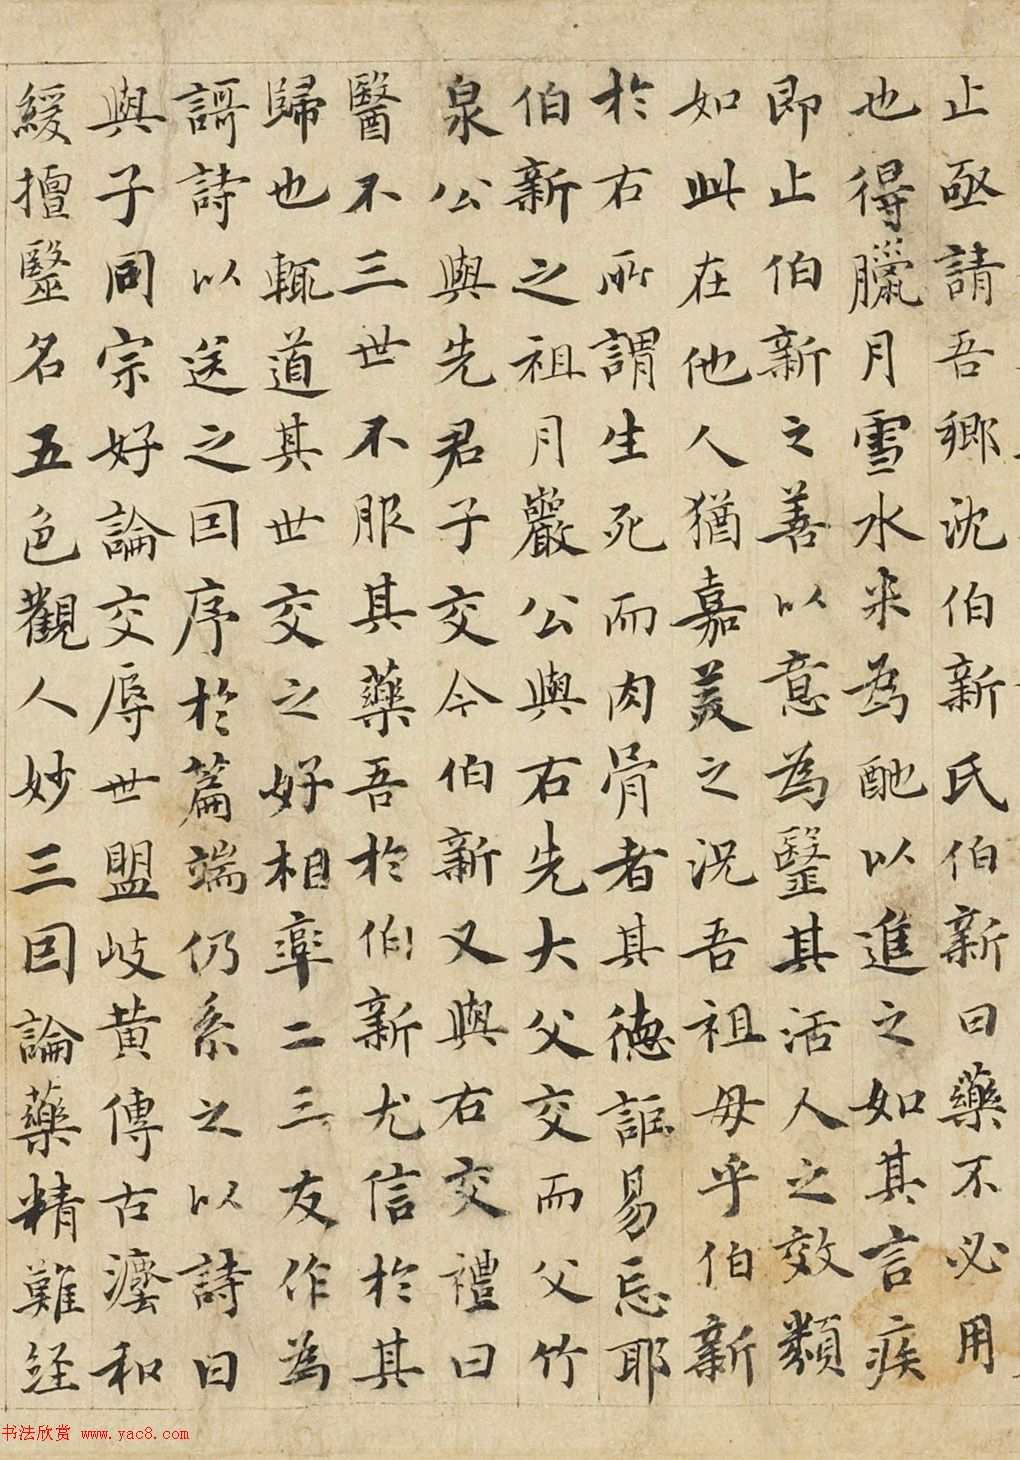 止亟請吾鄉沈伯新氏伯新曰藥不必用
也得臘月雪水米為酏以進之如其言疾
即止伯新之善以意為毉其活人之效類
如此在他人猶嘉美之況吾祖母乎伯新
於右所謂生死而肉骨者其德詎易忘耶
伯新之祖月巖公與右先大父交而父竹
泉公與先君子交今伯新又與右交禮曰
醫不三世不服其藥吾於伯新尤信於其
歸也輒道其世交之好相率二三友作為
謌詩以送之因序於篇端仍系之以詩曰
與子同宗好論交辱世盟岐黃傳古瀍和
緩擅毉名五色觀人妙三因論藥精難經
书法欣赏 www.yac8.com